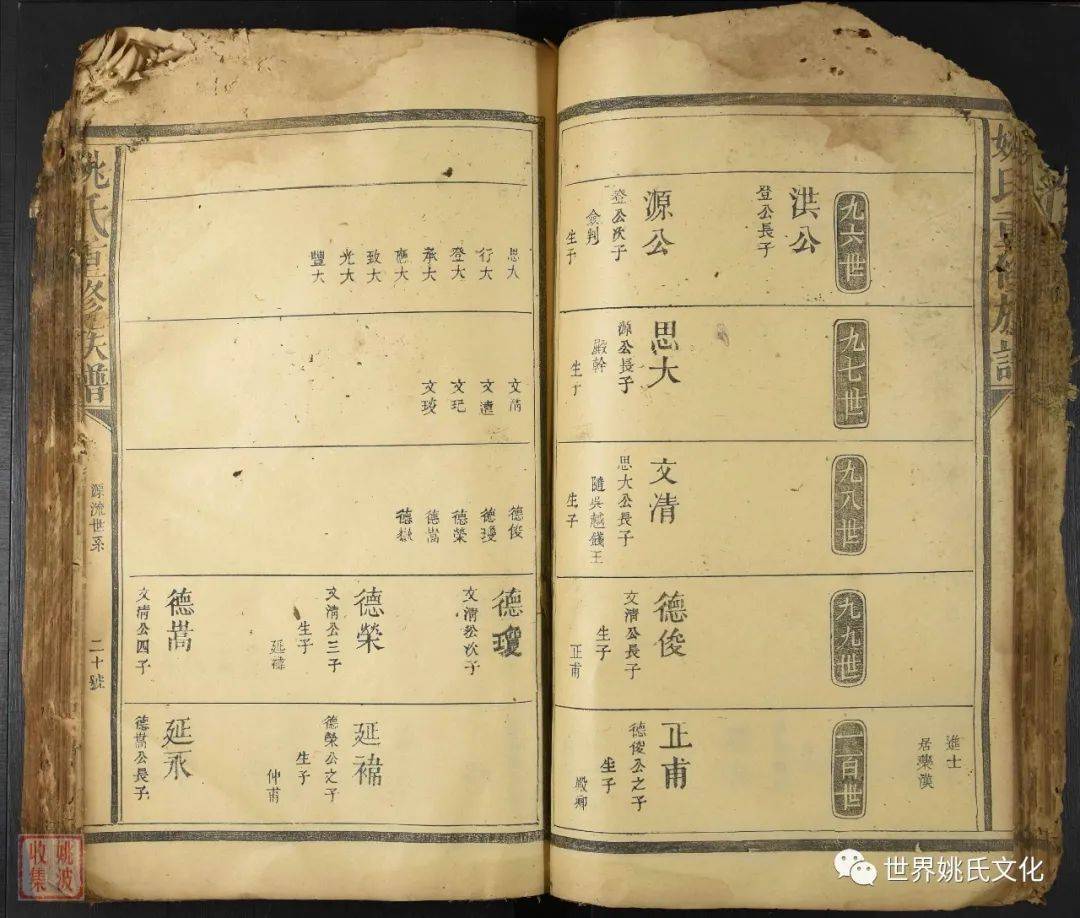 姚氏重修族譜
進士
居藥漢
九六世
洪公
登公長子
源公
登公次子
僉判
生子
思大
行大
登大
承大
應大
致大
光大
豐大
九七世
思大
源公長子
殿幹
生子
文清
文遠
文玘
文㻛
九八世
文清
思大公長子
隨吳越錢王
生子
德俊
德瓊
德榮
德嵩
德嶽
九九世
德俊
文清公長子
生子
正甫
德瓊
文清公次子
德榮
文清公三子
生子
延禕
德嵩
文清公四子
一百世
正甫
德俊公之子
生子
殿卿
延禕
德榮公之子
生子
仲甫
延永
德嵩公長子
姚氏重修族譜
源流世系
二十號
姚波
收集
世界姚氏文化